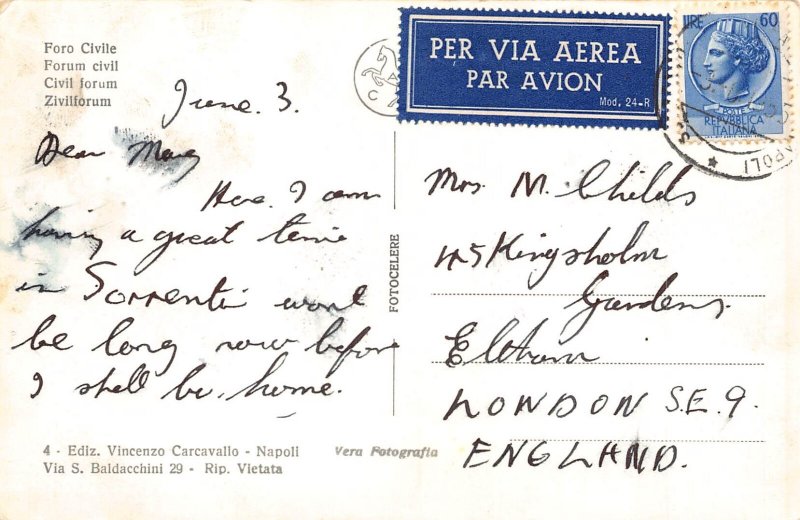 Foro Civile
Forum civil
Civil forum
Zivilforum
PER VIA AEREA
PAR AVION
Mod. 24-R
LIRE 60
POSTE
REPVBBLICA
ITALIANA
NAPOLI
June. 3.
Dear Mary
Here I am
having a great time
in Sorrento wont
be long now before
I shall be home.
FOTOCELERE
Mrs. M. Childs
45 Kingsholm
Gardens.
Eltham
LONDON S.E. 9.
ENGLAND.
4 - Ediz. Vincenzo Carcavallo - Napoli
Via S. Baldacchini 29 - Rip. Vietata
Vera Fotografia